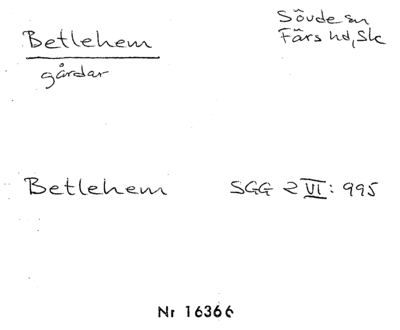 Betlehem
gårdar
Sövde sn
Färs hd, Sk
Betlehem SGG 2 VI: 995
Nr 16366